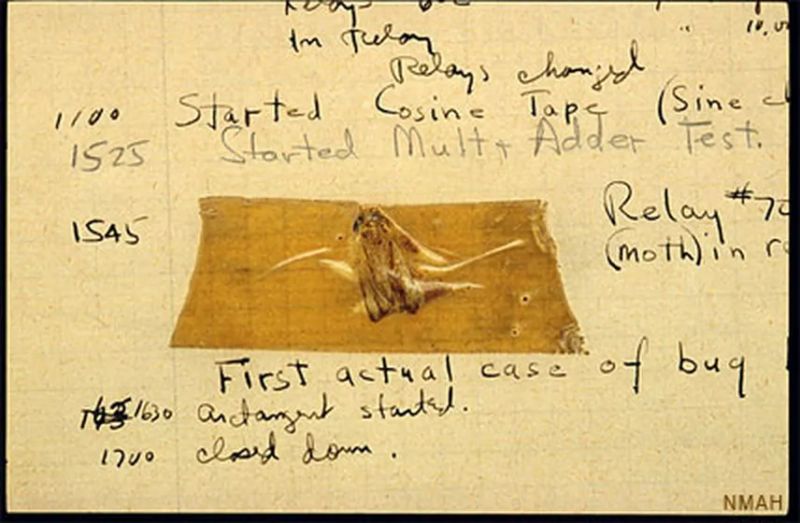 Relays
10,
In Relay
Relays changed
1100 Started Cosine Tape (Sine
1525 Started Mult+ Adder Test.
1545 Relay #70
(moth) in
First actual case of bug
1630 arctangent started.
1700 closed down.
NMAH